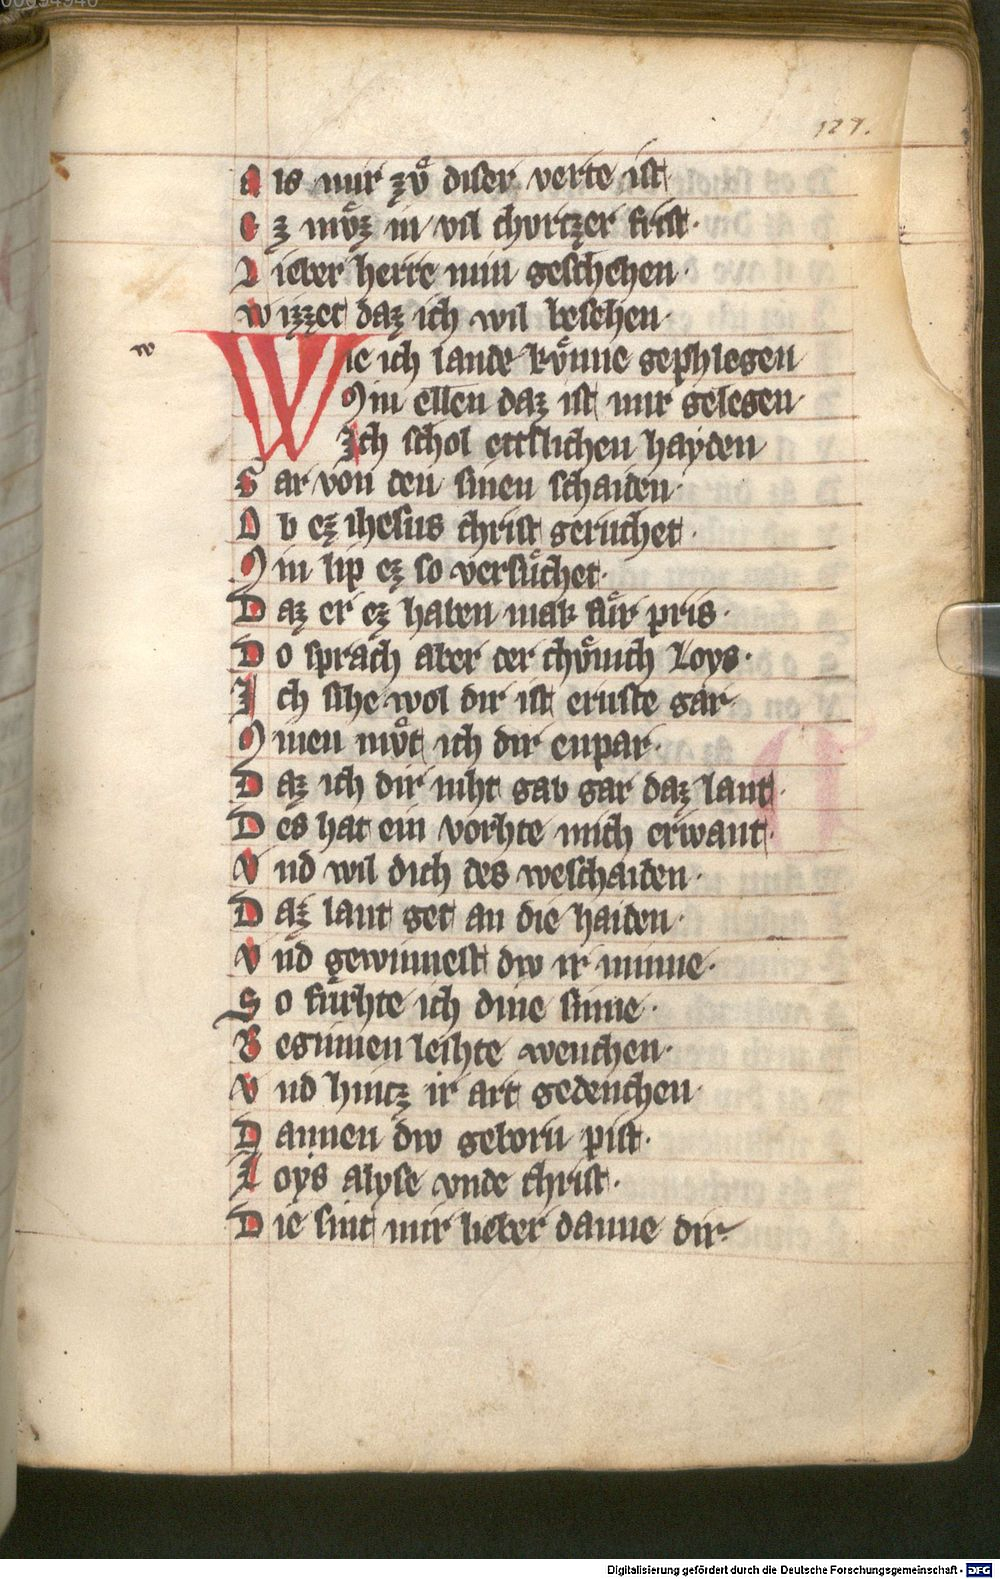 127.
A ls mir zvͦ diser verte ist
E z mvͤz in vil chvrtzer frist·
L ieber herre min geschehen·
W izzet daz ich wil besehen·
w
Wie ich lande kvͤnne gephlegen
Min ellen daz ist mir gelegen·
Ich schol ettslichen hayden
G ar von den sinen schaiden·
O b ez ihesus christ geruchet·
M in lip ez so versuͤchet·
D az er ez haben mak fuͤr pris·
D o sprach aber der chvͤnich Loys·
I ch sihe wol dir ist ernste gar·
M inen mvͦt ich dir enpar·
D az ich dir niht gab gar daz lant·
D es hat ein vorhte mich erwant·
V nd wil dich des weschaiden·
D az lant get an die haiden·
V nd gewinnest dw ir minne·
S o fuͤrhte ich dine sinne·
B eginnen leihte wenchen·
V nd hintz ir art gedenchen·
D annen dw geborn pist·
L oys alyse vnde christ·
D ie sint mir lieber danne dir·
Digitalisierung gefördert durch die Deutsche Forschungsgemeinschaft - DFG